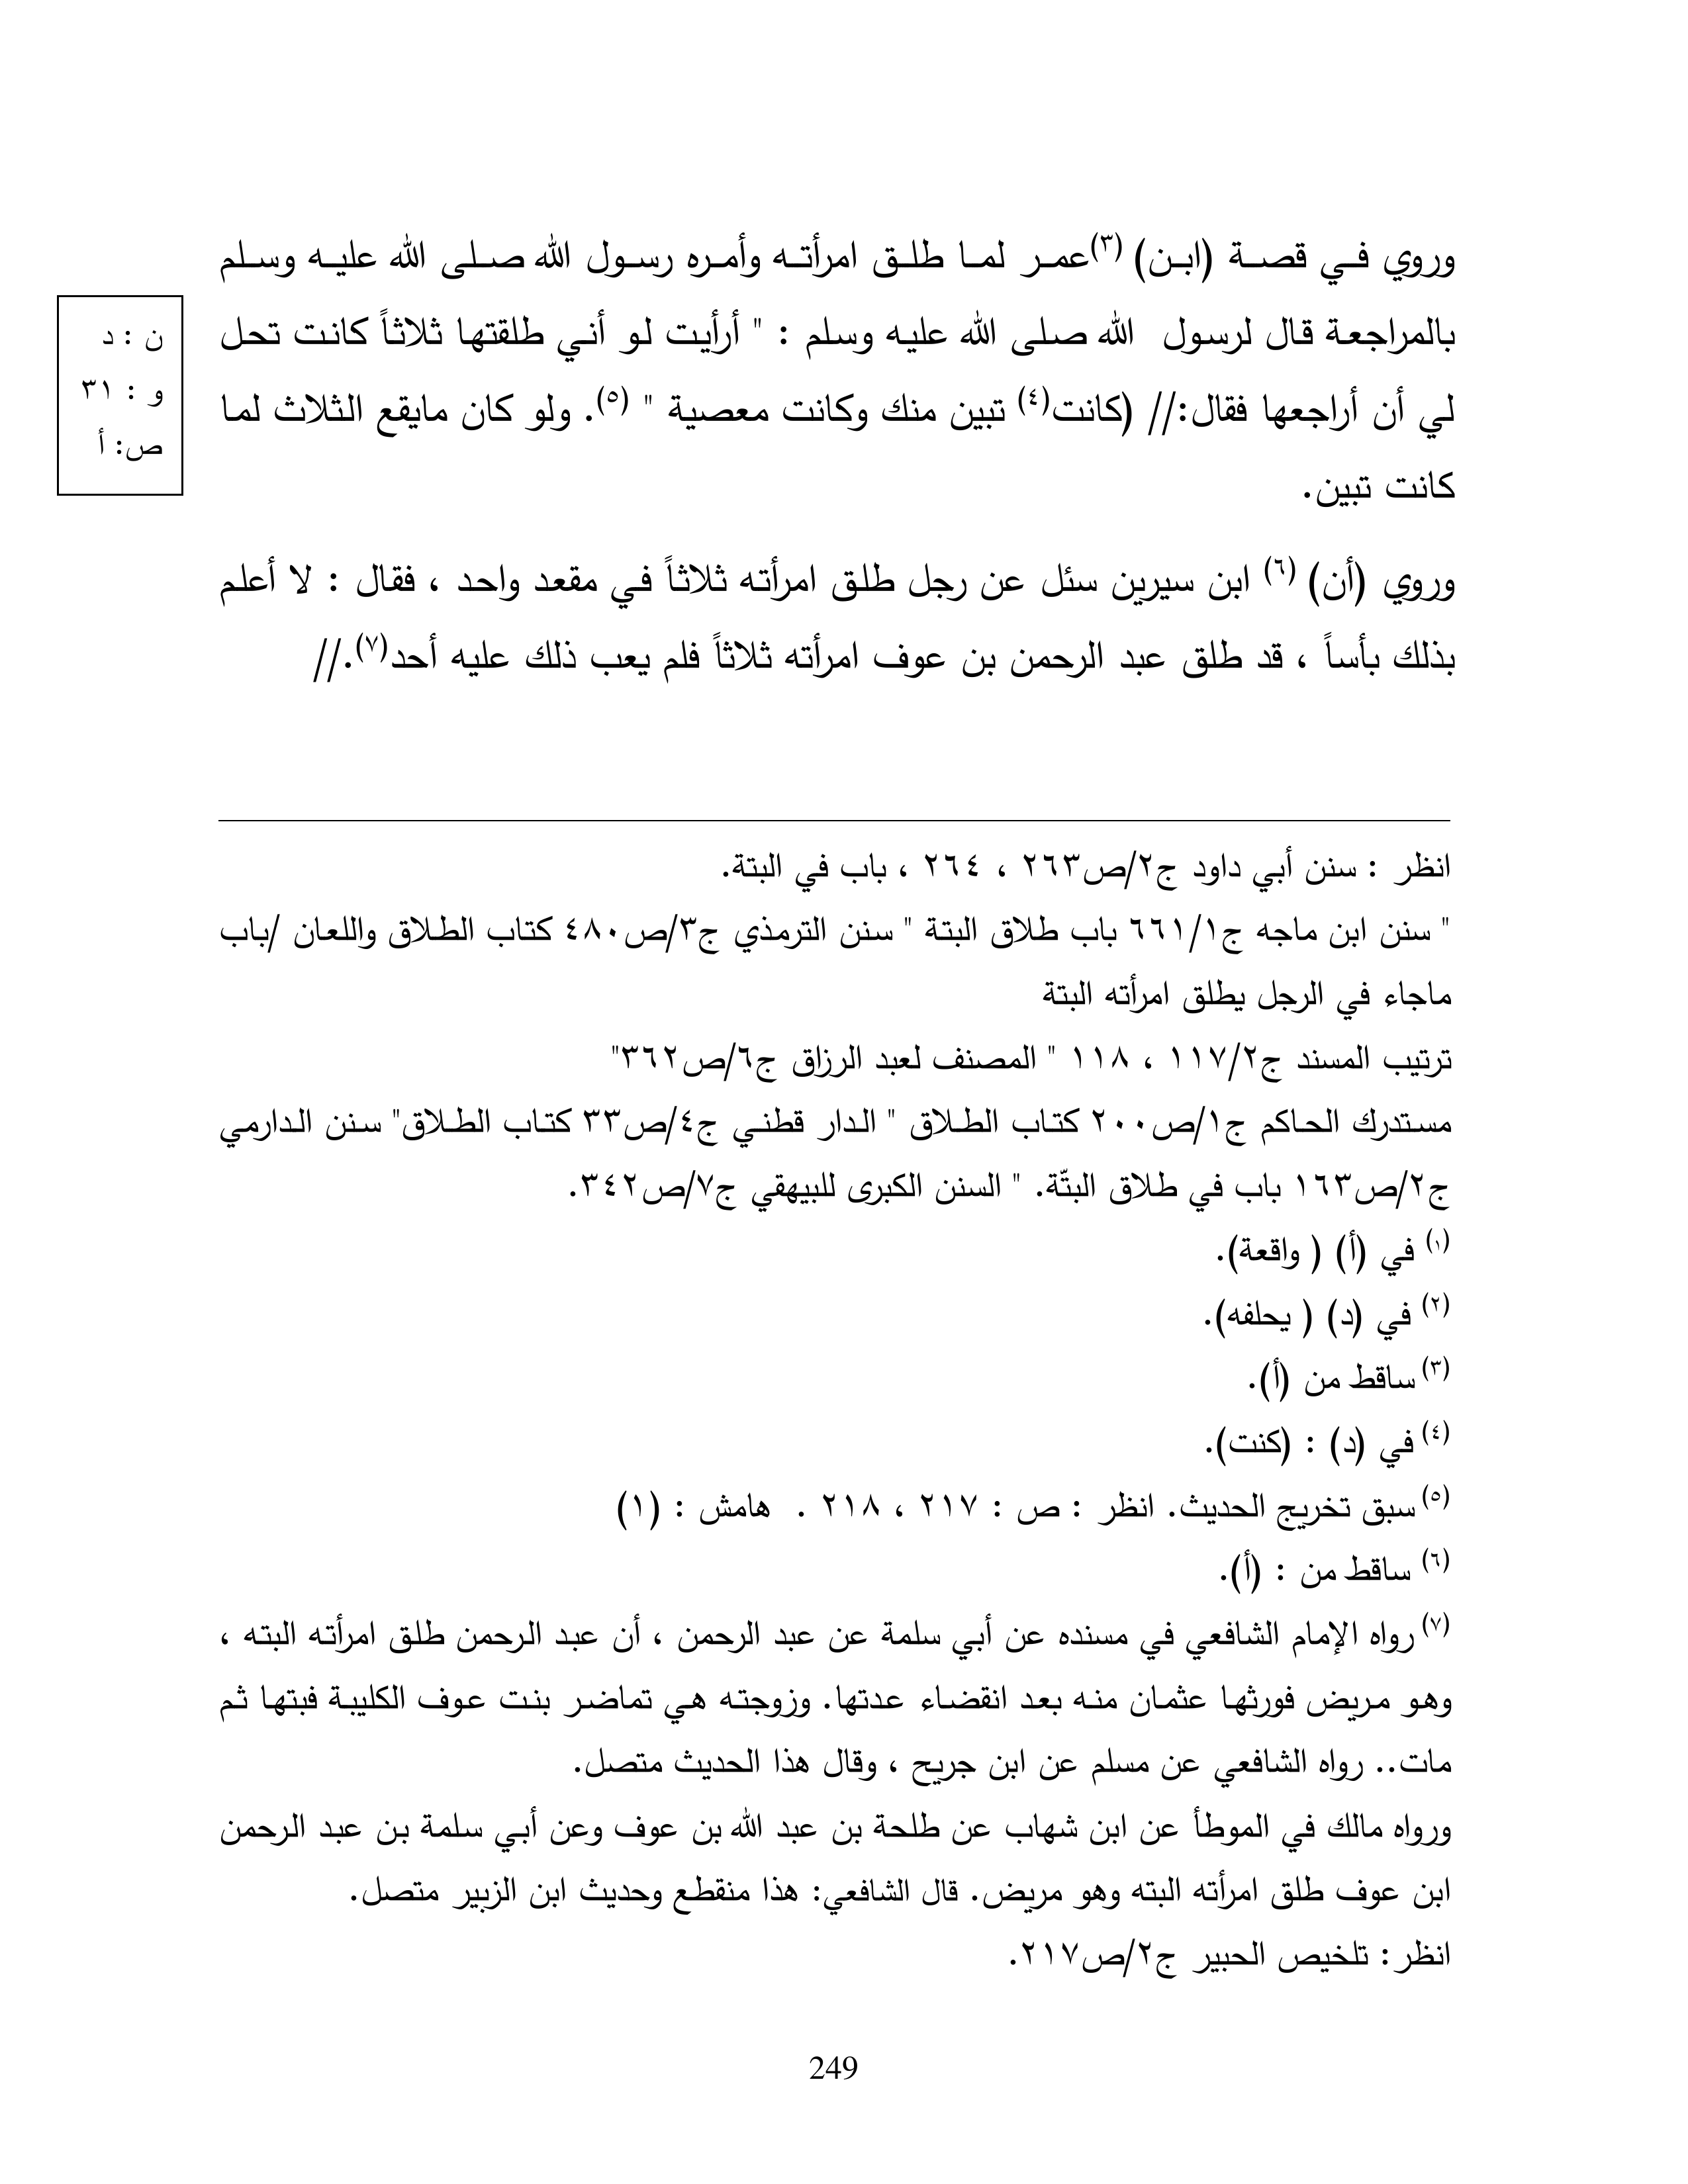 وروي في قصة (ابن) (٣)عمر لما طلق امرأته وأمره رسول الله صلى الله عليه وسلم
بالمراجعة قال لرسول الله صلى الله عليه وسلم : " أرأيت لو أني طلقتها ثلاثاً كانت تحل
لي أن أراجعها فقال:// (كانت(٤) تبين منك وكانت معصية " (٥). ولو كان مايقع الثلاث لما
كانت تبين.
ن : د
و : ٣١
ص: أ
وروي (أن) (٦) ابن سيرين سئل عن رجل طلق امرأته ثلاثاً في مقعد واحد ، فقال : لا أعلم
بذلك بأساً ، قد طلق عبد الرحمن بن عوف امرأته ثلاثاً فلم يعب ذلك عليه أحد(٧).//
انظر : سنن أبي داود ج٢/ص٢٦٣ ، ٢٦٤ ، باب في البتة.
" سنن ابن ماجه ج١/٦٦١ باب طلاق البتة " سنن الترمذي ج٣/ص٤٨٠ كتاب الطلاق واللعان /باب
ماجاء في الرجل يطلق امرأته البتة
ترتيب المسند ج٢/١١٧ ، ١١٨ " المصنف لعبد الرزاق ج٦/ص٣٦٢"
مستدرك الحاكم ج١/ص٢٠٠ كتاب الطلاق " الدار قطني ج٤/ص٣٣ كتاب الطلاق" سنن الدارمي
ج٢/ص١٦٣ باب في طلاق البتّة. " السنن الكبرى للبيهقي ج٧/ص٣٤٢.
(١) في (أ) ( واقعة).
(٢) في (د) ( يحلفه).
(٣) ساقط من (أ).
(٤) في (د) : (كنت).
(٥) سبق تخريج الحديث. انظر : ص : ٢١٧ ، ٢١٨ . هامش : (١)
(٦) ساقط من : (أ).
(٧) رواه الإمام الشافعي في مسنده عن أبي سلمة عن عبد الرحمن ، أن عبد الرحمن طلق امرأته البته ،
وهو مريض فورثها عثمان منه بعد انقضاء عدتها. وزوجته هي تماضر بنت عوف الكليبة فبتها ثم
مات.. رواه الشافعي عن مسلم عن ابن جريح ، وقال هذا الحديث متصل.
ورواه مالك في الموطأ عن ابن شهاب عن طلحة بن عبد الله بن عوف وعن أبي سلمة بن عبد الرحمن
ابن عوف طلق امرأته البته وهو مريض. قال الشافعي: هذا منقطع وحديث ابن الزبير متصل.
انظر: تلخيص الحبير ج٢/ص٢١٧.
249